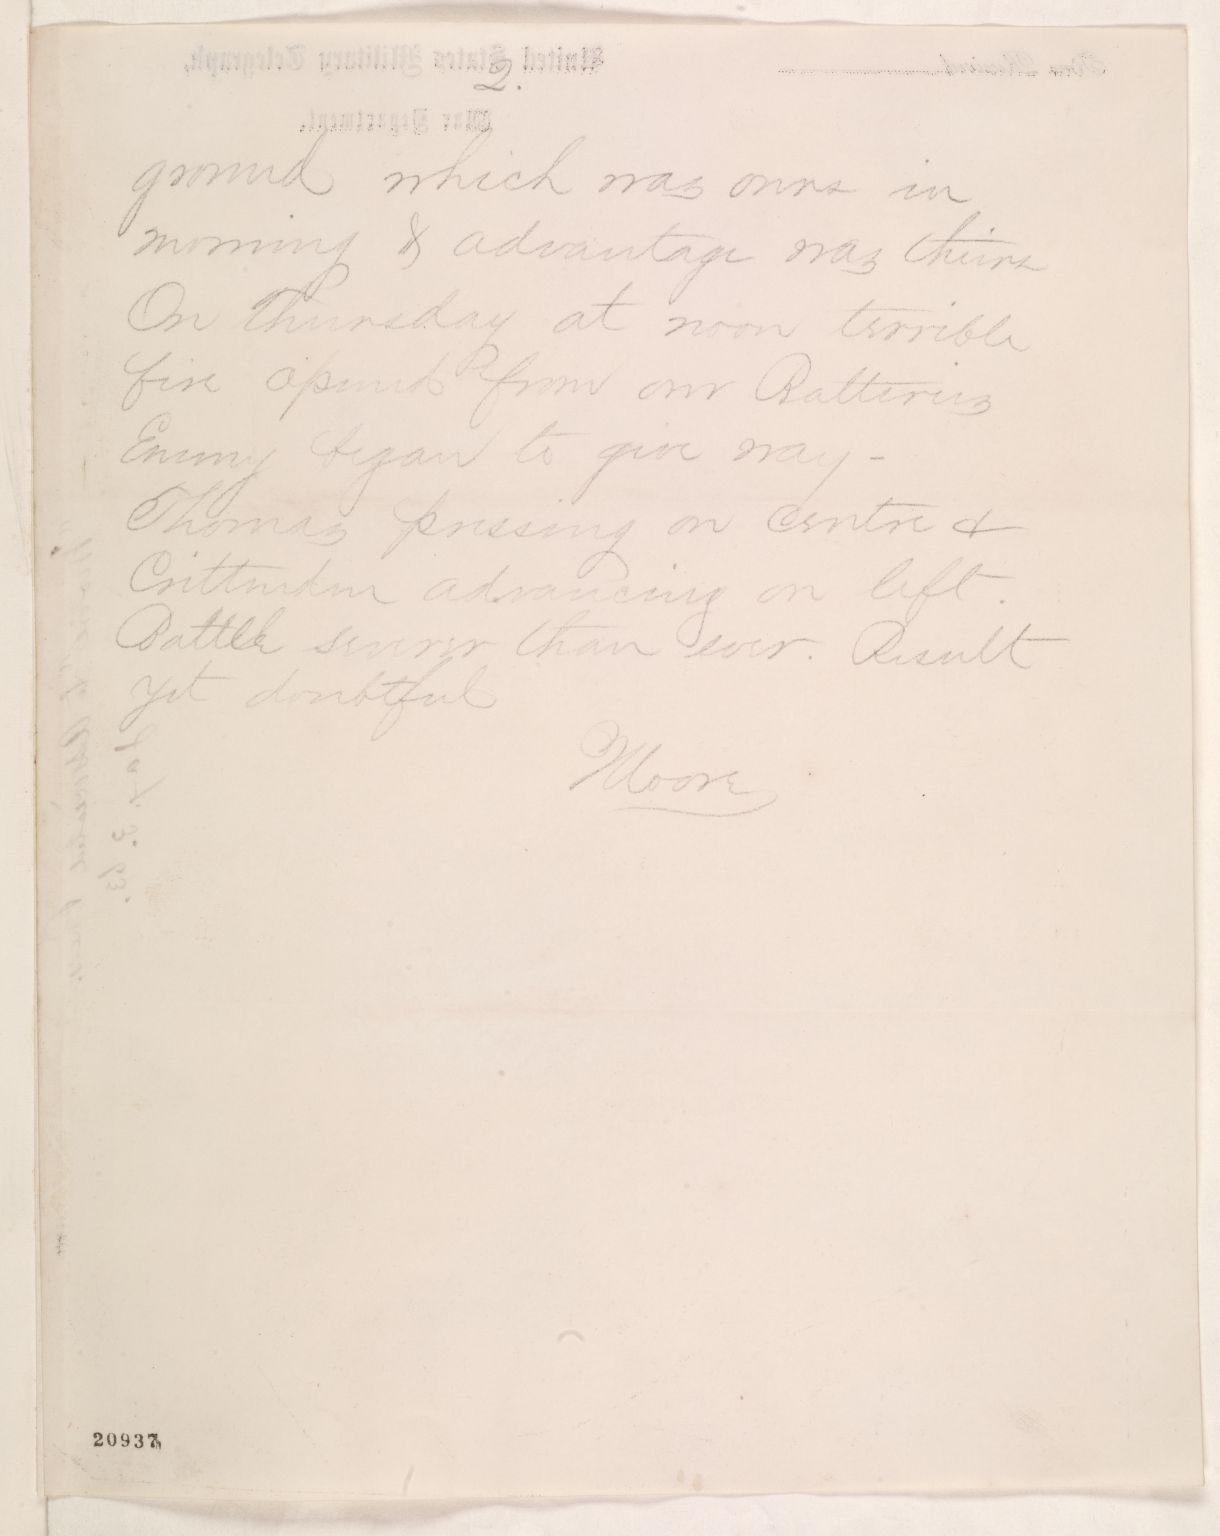 2.
ground which was ours in
morning & advantage was theirs
On Thursday at noon terrible
fire opened from our Batteries
Enemy began to give way -
Thomas pressing on centre &
Crittenden advancing on left.
Battle severer than ever. Result
yet doubtful
Moore
20937